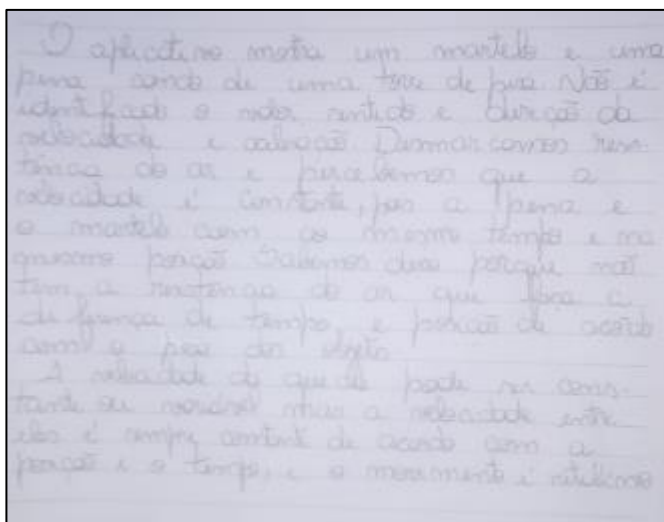 O aplicativo mostra um martelo e uma
pena caindo de uma torre de pisa. Não é
identificado o valor, sentido e direção da
velocidade e aceleração. Desmarcamos resis-
tência do ar e percebemos que a
velocidade é constante, pois a pena e
o martelo caem ao mesmo tempo e na
mesma posição. Sabemos disso porque não
tem a resistência do ar que faça a
diferença de tempo, e posição de acordo
com o peso dos objeto.
A velocidade da queda pode ser cons-
tante ou variável mas a velocidade entre
eles é sempre constante de acordo com a
posição e o tempo, e o movimento é retilíneo